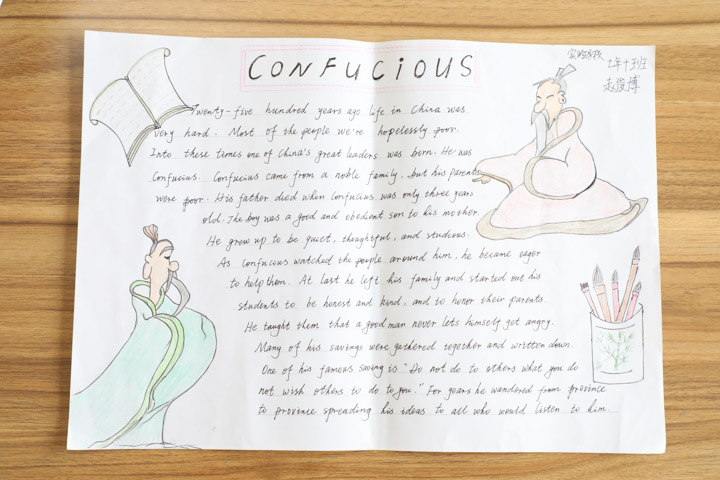 CONFUCIOUS
实验学校
七年十五班
赵俊博
Twenty-five hundred years ago life in China was
very hard. Most of the people we're hopelessly poor.
Into these times one of China's great leaders was born. He was
Confucius. Confucius came from a noble family, but his parents
were poor. His father died when Confucius was only three years
old. The boy was a good and obedient son to his mother.
He grew up to be quiet, thoughtful, and studious.
As Confucius watched the people around him, he became eager
to help them. At last he left his family and started out his
students to be honest and kind, and to honor their parents.
He taught them that a good man never lets himself get angry.
Many of his savings were gathered together and written down.
One of his famous saving is "Do not do to others what you do
not wish others to do to you." For years he wandered from province
to province spreading his ideas to all who would listen to him.